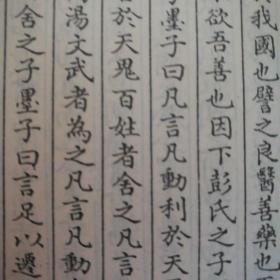 我國也譬之良醫善藥也
不欲吾善也因下彭氏之子
子墨子曰凡言凡動利於天
害於天鬼百姓者舍之凡言
湯文武者為之凡言凡動
舍之子墨子曰言足以遷